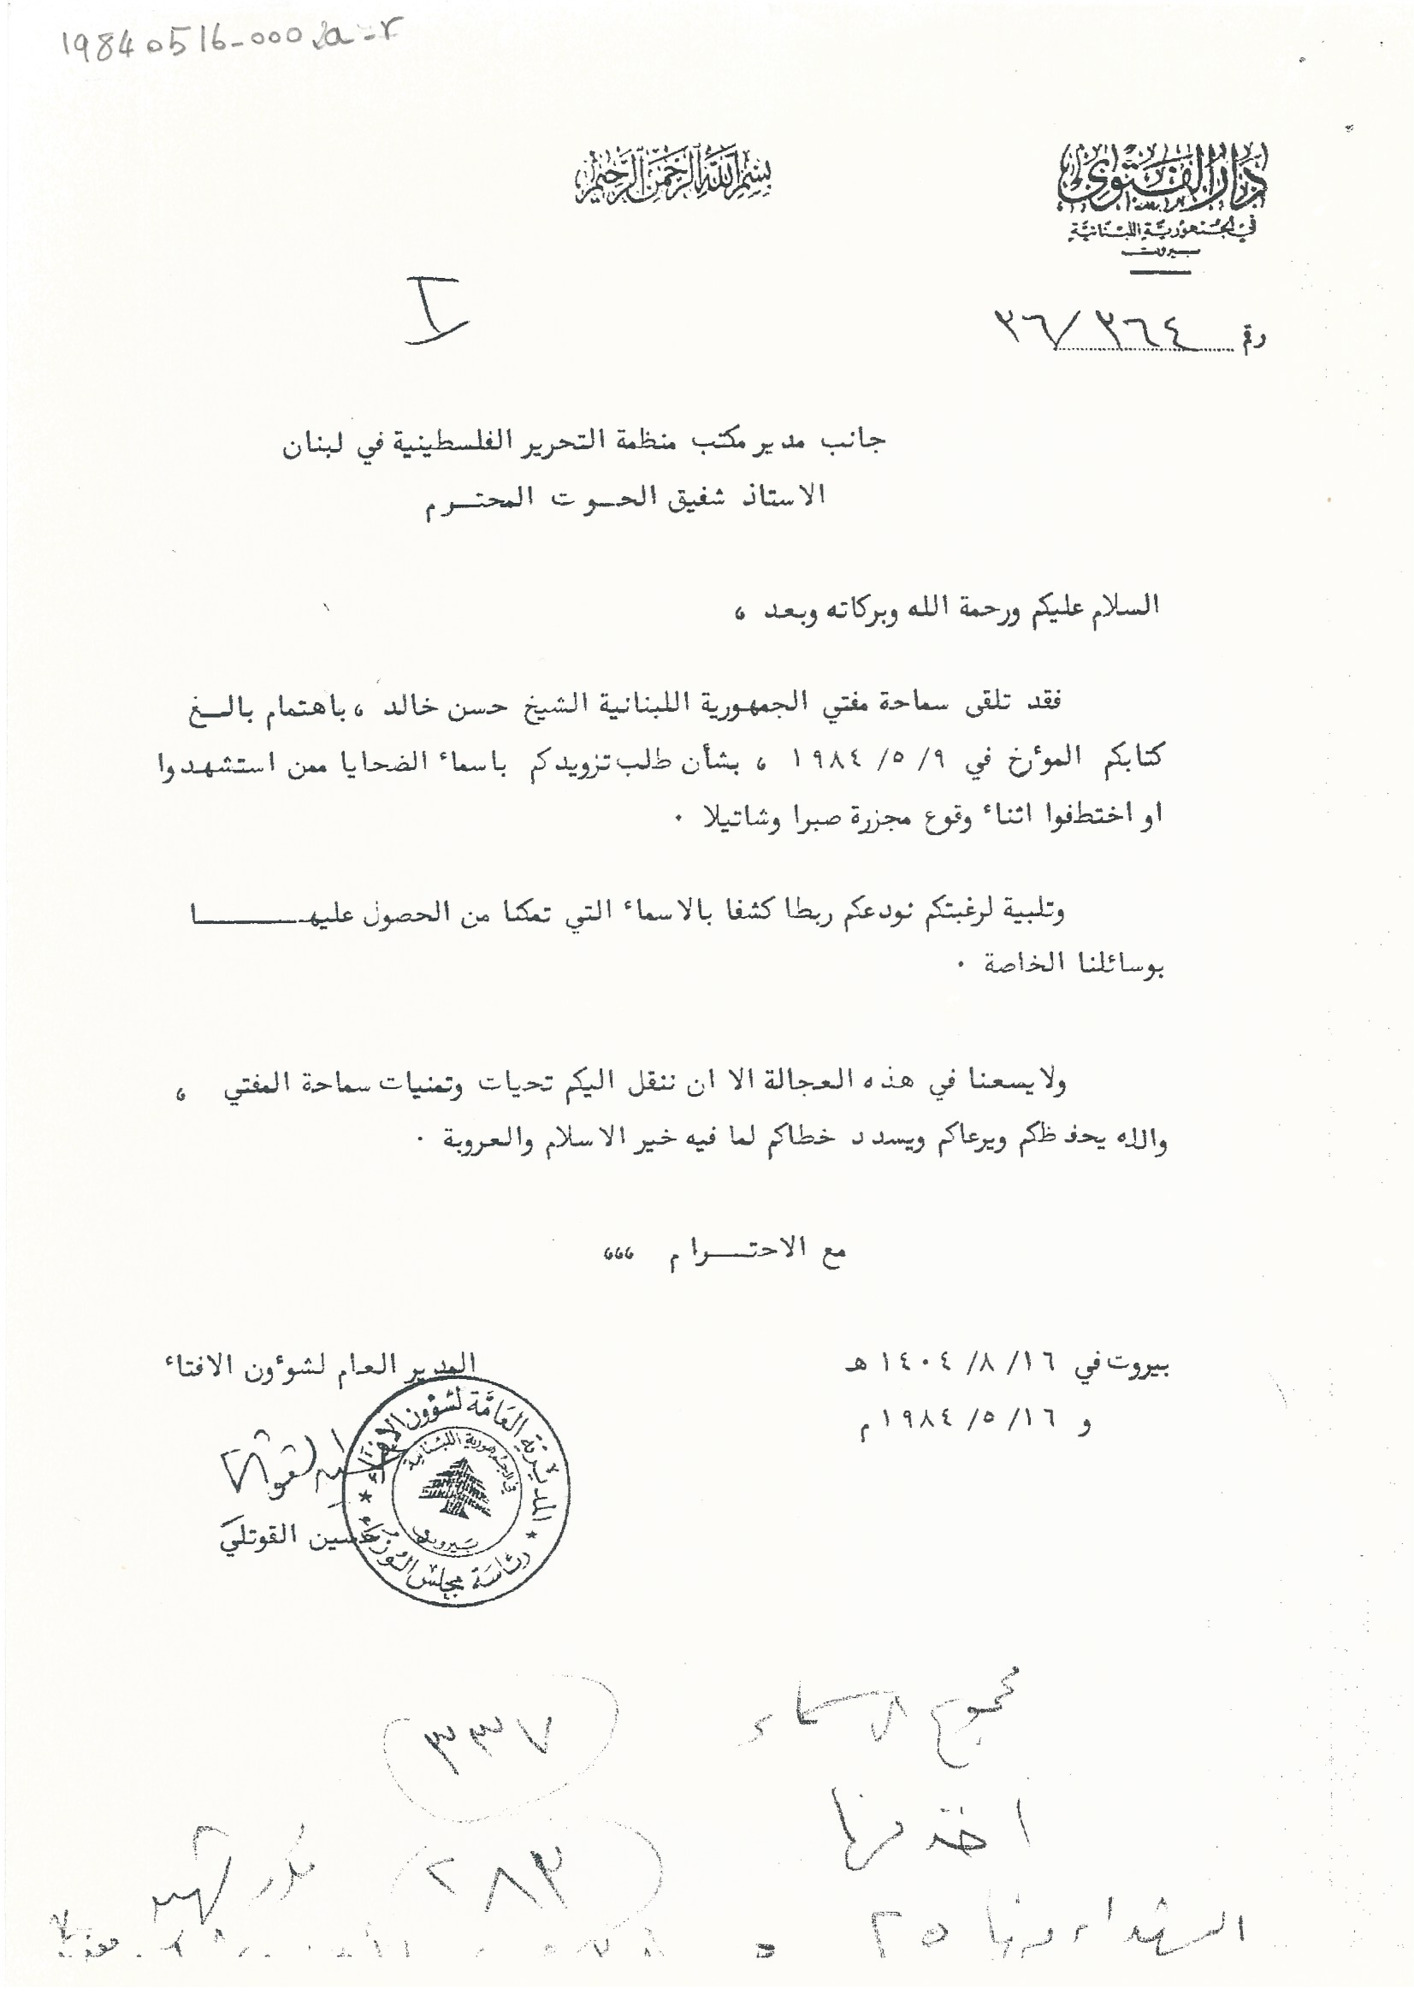 19840516-0002a-r
دار الفتوى
في الجمهورية اللبنانية
بيروت
بسم الله الرحمن الرحيم
I
رقم ٣٦/٣٦٤
جانب مدير مكتب منظمة التحرير الفلسطينية في لبنان
الاستاذ شفيق الحـوت المحتـرم
السلام عليكم ورحمة الله وبركاته وبعد ،
فقد تلقى سماحة مفتي الجمهورية اللبنانية الشيخ حسن خالد ، باهتمام بالـغ
كتابكم المؤرخ في ٩/ ٥/ ١٩٨٤ ، بشأن طلب تزويدكم باسماء الضحايا ممن استشهدوا
او اختطفوا اثناء وقوع مجزرة صبرا وشاتيلا .
وتلبية لرغبتكم نودعكم ربطا كشفا بالاسماء التي تمكنا من الحصول عليهـــــا
بوسائلنا الخاصة .
ولا يسعنا في هذه العجالة الا ان ننقل اليكم تحيات وتمنيات سماحة المفتي ،
والله يحفظكم ويرعاكم ويسدد خطاكم لما فيه خير الاسلام والعروبة .
مع الاحتــرام ،،،
بيروت في ١٦/ ٨/ ١٤٠٤ هـ
و ١٦/ ٥/ ١٩٨٤ م
المدير العام لشؤون الافتاء
حسين القوتلي
المديرية العامة لشؤون الإفتاء
في الجمهورية اللبنانية
بيروت
رئاسة مجلس الوزراء
مجموع الاسماء ٣٣٧
اخذ منها ٢٨٣
الشهداء منها ٢٥